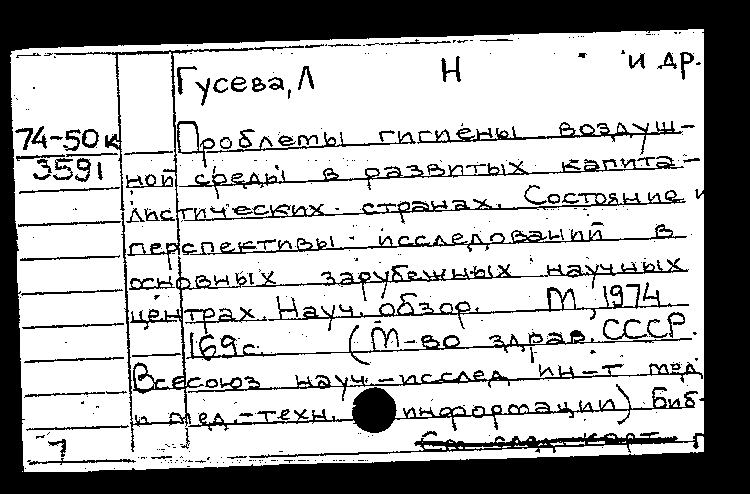 Гусева, Л Н и др.
74-50к
3591
Проблемы гигиены воздуш-
ной среды в развитых капита-
листических странах. Состояние и
перспективы исследований в
основных зарубежных научных
центрах. Науч. обзор. М, 1974
169с. (М-во здрав. СССР.
Всесоюз науч.-исслед ин-т мед
и мед.-техн. информации) Биб-
См след карт
7